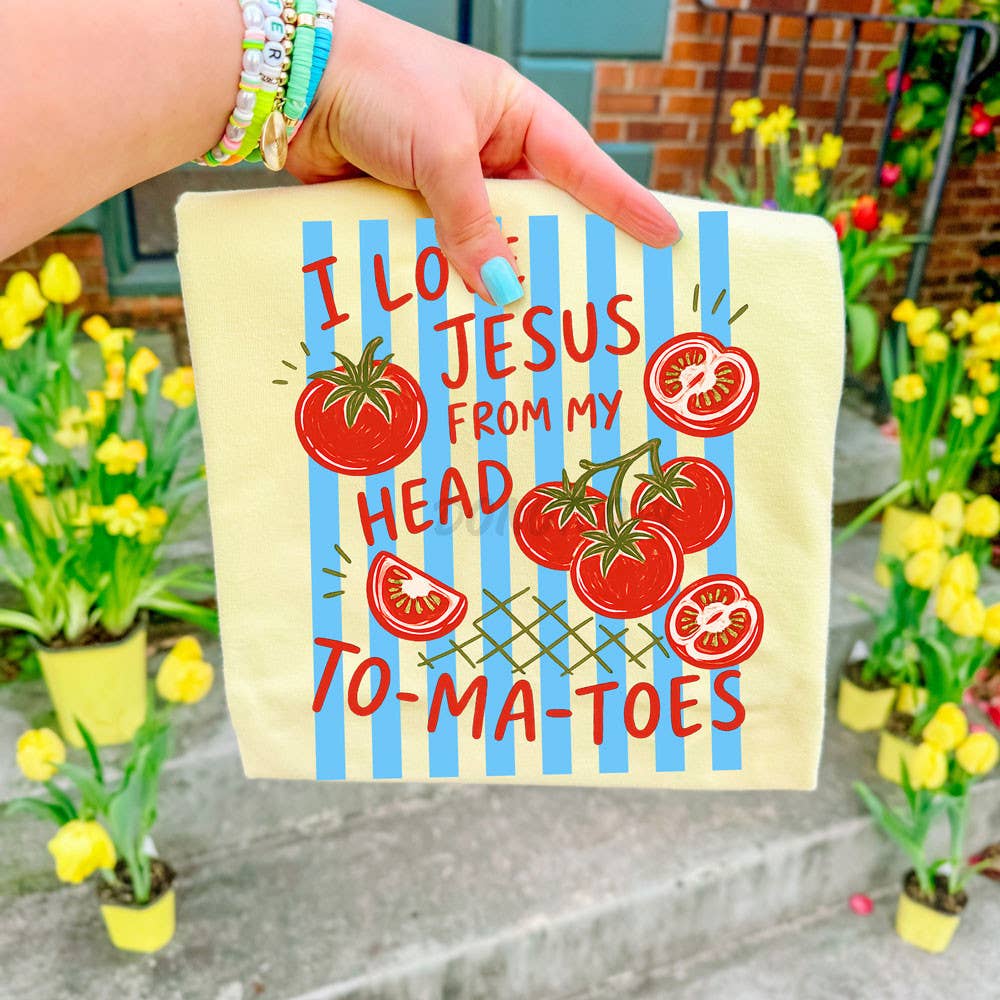 TER
I LOVE
JESUS
FROM MY
HEAD
TO-MA-TOES